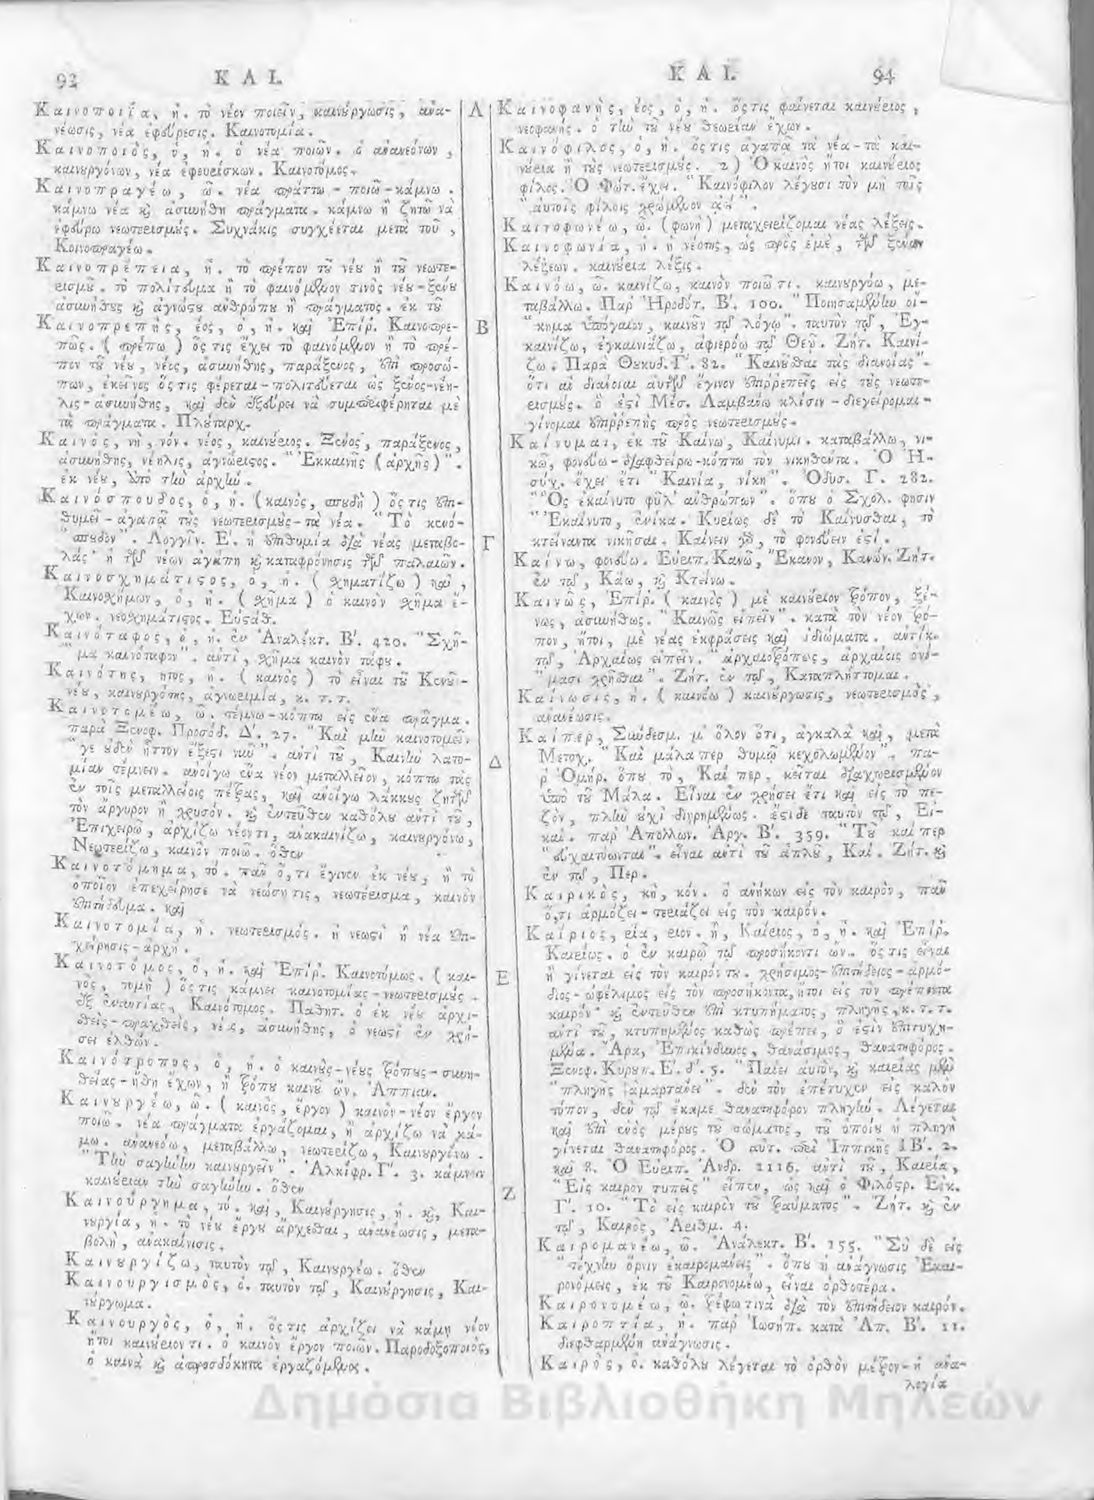 93 ΚΑΙ.
Καινοποιΐα, ἡ. τὸ νέον ποιεῖν, καινύργωσις, ἀνα-
νέωσις, νέα ἐφεύρεσις. Καινοτομία.
Καινοποιὸς, ὁ, ἡ. ὁ νέα ποιῶν. ὁ ἀνανεόνων,
καινυργόνων, νέα ἐφευρίσκων. Καινοτόμος.
Καινοπραγέω, ῶ. νέα πράττω - ποιῶ - κάμνω.
κάμνω νέα ϗ ἀσυνήθη πράγματα. κάμνω ἢ ζητῶ νὰ
ἐφεύρω νεωτερισμύς. Συχνάκις συγχέεται μετὰ τοῦ,
Κοινοπραγέω.
Καινοπρέπεια, ἡ. τὸ πρέπον τȣ͂ νέȣ ἢ τȣ͂ νεωτε-
ρισμȣ͂. τὸ πολίτευμα ἢ τὸ φαινόμενον τινὸς νέȣ - ξένȣ
ἀσυνήθȣς ϗ ἀγνώςȣ ἀνθρώπȣ ἢ πράγματος. ἐκ τȣ͂
Καινοπρεπὴς, έος, ὁ, ἡ. καὶ Ἐπίρ. Καινοπρε-
πῶς. (πρέπω) ὅς τις ἔχει τὸ φαινόμενον ἢ τὸ πρέ-
πον τȣ͂ νέȣ, νέος, ἀσυνήθης, παράξενος, ἐπὶ προσώ-
πων, ἐκεῖνος ὅςτις φέρεται - πολιτεύεται ὡς ξένος - νέη-
λις - ἀσυνήθης, καὶ δὲν ἐξεύρει νὰ συμπεριφέρηται μὲ
τὰ πράγματα. Πλύταρχ.
Καινὸς, νὴ, νόν. νέος, καινύριος. Ξένος, παράξενος,
ἀσυνήθης, νέηλις, ἀγνώριςος. "Ἐκκαινῆς (ἀρχῆς)".
ἐκ νέȣ, ἀπὸ τὴν ἀρχήν.
Καινόσπουδος, ὁ, ἡ. (καινὸς, σπουδὴ) ὅς τις ἐπι-
θυμεῖ - ἀγαπᾷ τȣ̀ς νεωτερισμȣ̀ς - τὰ νέα. "Τὸ κενό-
"σπυδον". Λογγῖν. Ε΄. ἡ ἐπιθυμία διὰ νέας μεταβο-
λάς· ἡ τῶν νέων ἀγάπη ϗ καταφρόνησις τῶν παλαιῶν.
Καινοσχημάτιςος, ὁ, ἡ. (σχηματίζω) καὶ,
Καινοσχήμων, ὁ, ἡ. (σχῆμα) ὁ καινὸν σχῆμα ἔ-
χων. νεοσχημάτιςος. Εὐςάθ.
Καινόταφος, ὁ, ἡ. ἐν Ἀναλέκτ. Β΄. 420. "Σχῆ-
"μα καινόταφον". ἀντὶ, σχῆμα καινȣ͂ τάφȣ.
Καινότης, ητος, ἡ. (καινὸς) τὸ εἶναι τȣ͂ Καινȣ͂ -
νέȣ, καινȣργότης, ἀγνωριμία, κ. τ. τ.
Καινοτομέω, ῶ. τέμνω - κόπτω εἰς ἕνα πρᾶγμα.
παρὰ Ξενοφ. Προσόδ. Δ΄. 27. "Καὶ μὴν καινοτομεῖν
"γε ȣδὲν ἧττον ἔξεςι νῦν". ἀντὶ τȣ͂, Καινὴν λατο-
μίαν τέμνειν. ἀνοίγω ἕνα νέον μεταλλεῖον, κόπτω τὰς
ἐν τοῖς μεταλλείοις πέτρας, καὶ ἀνοίγω λάκκȣς ζητῶν
τὸν ἄργυρον ἢ χρυσόν. ϗ ἐντεῦθεν καθόλȣ ἀντὶ τȣ͂,
Ἐπιχειρῶ, ἀρχίζω νέοντι, ἀνακαινίζω, καινȣργόνω,
Νεωτερίζω, καινὸν ποιῶ. ὅθεν
Καινοτόμημα, τό. πᾶν ὅ,τι ἔγινεν ἐκ νέȣ, ἢ τὸ
ὁποῖον ἐπεχείρησε νὰ νεώσῃ τις, νεωτέρισμα, καινὸν
ἐπιτήδευμα. καὶ
Καινοτομία, ἡ. νεωτερισμός. ἡ νεωςὶ ἢ νέα ἐπι-
χείρησις - ἀρχή.
Καινοτόμος, ὁ, ἡ. καὶ Ἐπίρ. Καινοτόμως. (και-
νὸς, τομὴ) ὅς τις κάμνει καινοτομίας - νεωτερισμύς.
ἐξ ἐναντίας, Καινότομος. Παθητ. ὁ ἐκ νέȣ ἀρχι-
θεὶς - πραχθεὶς, νέος, ἀσυνήθης, ὁ νεωςὶ ἐν χρή-
σει ἐλθών.
Καινότροπος, ὁ, ἡ. ὁ καινȣ̀ς - νέȣς τρόπȣς - συνη-
θείας - ἤθη ἔχων, ἢ τρόπȣ καινȣ͂ ὤν. Ἀππιαν.
Καινȣργέω, ῶ. (καινὸς, ἔργον) καινὸν - νέον ἔργον
ποιῶ. νέα πράγματα ἐργάζομαι, ἢ ἀρχίζω νὰ κά-
μω. ἀνανεόω, μεταβάλλω, νεωτερίζω, Καινȣργόνω.
"Τὴν σαγήνην καινȣργεῖν". Ἀλκίφρ. Γ΄. 3. κάμνειν
καινȣ́ριαν τὴν σαγήνην. ὅθεν
Καινούργημα, τό. καὶ, Καινȣ́ργησις, ἡ. ϗ, Και-
νȣργία, ἡ. τὸ νέȣ ἔργȣ ἄρχεσθαι, ἀνανέωσις, μετα-
βολὴ, ἀνακαίνισις.
Καινȣργίζω, ταυτὸν τῷ, Καινȣργέω. ὅθεν
Καινουργισμὸς, ὁ. ταυτὸν τῷ, Καινȣ́ργησις, Και-
νȣ́ργωμα.
Καινουργὸς, ὁ, ἡ. ὅςτις ἀρχίζει νὰ κάμῃ νέον
ἤτοι καινȣ́ριον τι. ὁ καινὸν ἔργον ποιῶν. Παροδοξοποιὸς,
ὁ καινὰ ϗ ἀπροσδόκητα ἐργαζόμενος.
Α
Β
Γ
Δ
Ε
Ζ
ΚΑΙ. 94
Καινοφανὴς, έος, ὁ, ἡ. ὅςτις φαίνεται καινȣ́ριος,
νεοφανής. ὁ τὴν τȣ͂ νέȣ θεωρίαν ἔχων.
Καινόφιλος, ὁ, ἡ. ὅςτις ἀγαπᾷ τὰ νέα - τὰ και-
νȣ́ρια ἢ τȣ̀ς νεωτερισμύς. 2) Ὁ καινὸς ἤτοι καινȣ́ριος
φίλος. Ὁ Φώτ. ἔχει. "Καινόφιλον λέγȣσι τὸν μὴ τοῖς
"αὐτοῖς φίλοις χρώμενον ἀεί".
Καινοφωνέω, ῶ. (φωνὴ) μεταχειρίζομαι νέας λέξεις.
Καινοφωνία, ἡ. ἡ νεότης, ὡς πρὸς ἐμὲ, τῶν ξένων
λέξεων. καινȣ́ρια λέξις.
Καινόω, ῶ. καινίζω, καινὸν ποιῶ τι. καινȣργόω, με-
ταβάλλω. Παρ Ἡροδότ. Β΄. 100. "Ποιησαμένην οἴ-
"κημα ὑπόγαιον, καινοῦν τῷ λόγῳ". ταυτὸν τῷ, Ἐγ-
καινίζω, ἐγκαινιάζω, ἀφιερόω τῷ Θεῷ. Ζήτ. Καινί-
ζω. Παρὰ Θȣκυδ. Γ΄. 82. "Καινȣ͂σθαι τὰς διανοίας".
ὅτι αἱ διάνοιαι αὐτῶν ἔγινον ἐπιρρεπεῖς εἰς τȣ̀ς νεωτε-
ρισμύς. ὅ ἐςι Μέσ. Λαμβάνω κλίσιν - διεγείρομαι -
γίνομαι ἐπιρρεπὴς πρὸς νεωτερισμύς.
Καίνυμαι, ἐκ τȣ͂ Καίνω, Καίνυμι. καταβάλλω, νι-
κῶ, φονεύω - διαφθείρω - κόπτω τὸν νικηθέντα. Ὁ Ἡ-
σύχ. ἔχει ἔτι "Καινία, νίκη". Ὀδυσ. Γ. 282.
"Ὃς ἐκαίνυτο φῦλ' ἀνθρώπων". ὅπȣ ὁ Σχολ. φησιν
"Ἐκαίνυτο, ἐνίκα. Κυρίως δὲ τὸ Καίνυσθαι, τὸ
κτείναντα νικῆσαι. Καίνειν γὰρ, τὸ φονεύειν ἐςί.
Καίνω, φονεύω. Εὐριπ. Κανῶ, Ἔκανον, Κανών. Ζήτ.
ἐν τῷ, Κάω, ϗ Κτείνω.
Καινῶς, Ἐπίρ. (καινὸς) μὲ καινȣ́ριον τρόπον, ξέ-
νως, ἀσυνήθως. "Καινῶς εἰπεῖν". κατὰ τὸν νέον τρό-
πον, ἤτοι, μὲ νέας ἐκφράσεις καὶ ἰδιώματα. ἀντίκ.
τῷ, Ἀρχαίως εἰπεῖν. "ἀρχαιοτρόπως, ἀρχαίοις ὀνό-
"μασι χρῆσθαι". Ζήτ. ἐν τῷ, Καταπλήττομαι.
Καίνωσις, ἡ. (καινόω) καινȣ́ργωσις, νεωτερισμὸς,
ἀνανέωσις.
Καίπερ, Σύνδεσμ. μ' ὅλον ὅτι, ἀγκαλὰ καὶ, μετὰ
Μετοχ. "Καὶ μάλα περ θυμῷ κεχολωμένον". πα-
ρ Ὁμήρ. ὅπȣ τὸ, Καί περ, κεῖται διαχωρισμένον
ὑπὸ τȣ͂ Μάλα. Εἶναι ἐν χρήσει ἔτι καὶ εἰς τὸ πε-
ζὸν, πλὴν ȣχὶ διῃρημένως. ἔςιδε ταυτὸν τῷ, Εἰ-
καί. παρ Ἀπολλων. Ἀργ. Β΄. 359. "Τȣ͂ καί περ
"εὐχετόωνται". εἶναι ἀντὶ τȣ͂ ἁπλȣ͂, Καί. Ζήτ. ϗ
ἐν τῷ, Περ.
Καιρικὸς, κὴ, κόν. ὁ ἀνήκων εἰς τὸν καιρὸν, πᾶν
ὅ,τι ἁρμόζει - ταιριάζει εἰς τὸν καιρόν.
Καίριος, ρία, ριον. ἢ, Καίριος, ὁ, ἡ. καὶ Ἐπίρ.
Καιρίως. ὁ ἐν καιρῷ τῷ προσήκοντι ὤν. ὅς τις εἶναι
ἢ γίνεται εἰς τὸν καιρόν τȣ. χρήσιμος - ἐπιτήδειος - ἁρμό-
διος - ὠφέλιμος εἰς τὸν προσήκοντα, ἤτοι εἰς τὸν πρέποντα
καιρόν· ϗ ἐντεῦθεν ἐπὶ κτυπήματος, πληγῆς, κ. τ. τ.
ἀντὶ τȣ͂, κτυπημένος καθὼς πρέπει, ὅ ἐςιν ἐπιτυχη-
μένα. Ἄρα, Ἐπικίνδυνος, θανάσιμος, θανατηφόρος.
Ξενοφ. Κυρυπ. Ε΄. δ΄. 5. "Παίει αὐτὸν, ϗ καιρίας μὲν
"πληγῆς ἁμαρτάνει". δὲν τὸν ἐπέτυχεν εἰς καλὸν
τόπον, δὲν τῷ ἔκαμε θανατηφόρον πληγήν. Λέγεται
καὶ ἐπὶ ἑνὸς μέρȣς τȣ͂ σώματος, τȣ͂ ὁποίȣ ἡ πληγὴ
γίνεται θανατηφόρος. Ὁ αὐτ. περὶ Ἱππικῆς ΙΒ΄. 2.
καὶ 8. Ὁ Εὐριπ. Ἀνδρ. 1116. ἀντὶ τȣ͂, Καιρία,
"Εἰς καιρὸν τυπεὶς" εἶπεν, ὡς καὶ ὁ Φιλόςρ. Εἰκ.
Γ΄. 10. "Τὸ εἰς καιρὸν τȣ͂ τραύματος". Ζήτ. ϗ ἐν
τῷ, Καιρὸς, Ἀριθμ. 4.
Καιρομανέω, ῶ. Ἀνάλεκτ. Β΄. 155. "Σὺ δὲ εἰς
"τέχνην ὄρνιν ἐκαιρομάνεις". ὅπȣ ἡ ἀνάγνωσις Ἐκαι-
ρονόμεις, ἐκ τȣ͂ Καιρονομέω, εἶναι ὀρθοτέρα.
Καιρονομέω, ῶ. τρέφω τινὰ διὰ τὸν ἐπιτήδειον καιρόν.
Καιροπτία, ἡ. παρ Ἰωσήπ. κατὰ Ἀπ. Β΄. 11.
διεφθαρμένη ἀνάγνωσις.
Καιρὸς, ὁ. καθόλȣ λέγεται τὸ ὀρθὸν μέτρον - ἡ ἀνα-
λογία
Δημόσια Βιβλιοθήκη Μηλεών